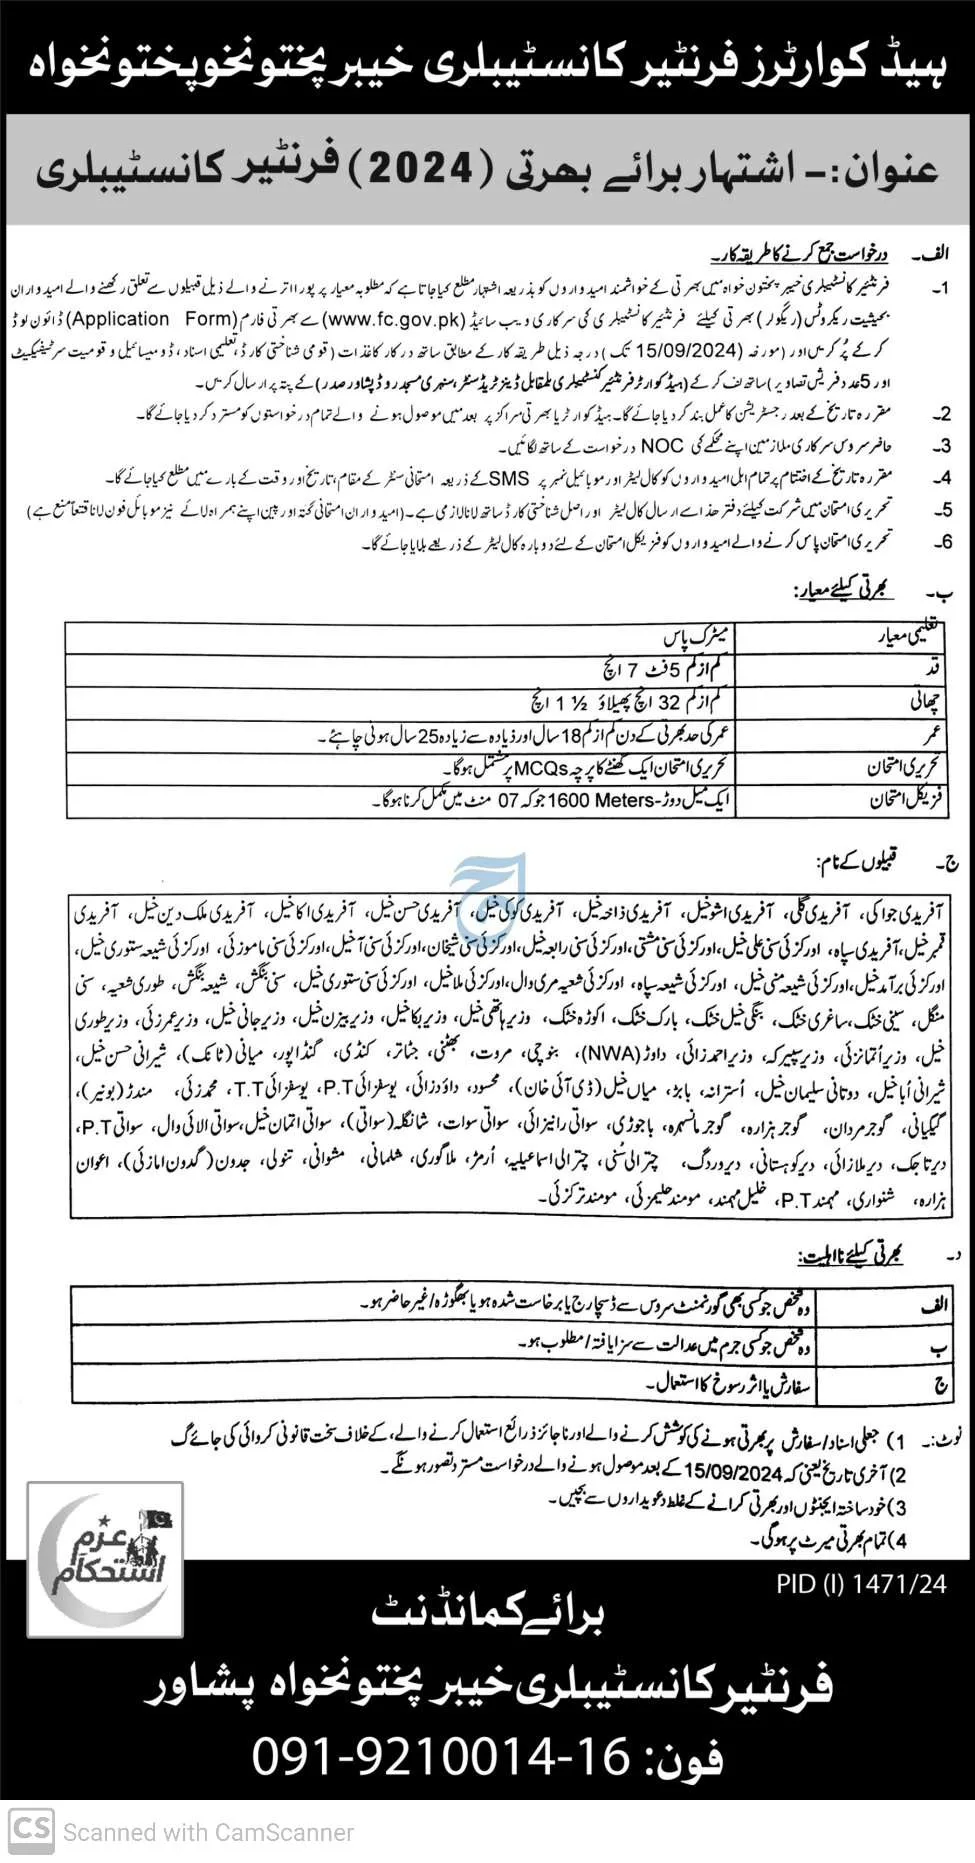 ہیڈ کوارٹرز فرنٹیر کانسٹیبلری خیبر پختونخوپختونخواہ
عنوان:- اشتہار برائے بھرتی (2024) فرنٹیر کانسٹیبلری
الف۔ درخواست جمع کرنے کا طریقہ کار۔
1۔ فرنٹیر کانسٹیبلری خیبر پختون خواہ میں بھرتی کے خواشمند امیدواروں کو بذریعہ اشتہار مطلع کیا جاتا ہے کہ مطلوبہ معیار پر پورا اترنے والے ذیل قبیلوں سے تعلق رکھنے والے امیدواران
بحیثیت ریکروٹس (ریگولر) بھرتی کیلئے فرنٹیر کانسٹیبلری کی سرکاری ویب سائیڈ (www.fc.gov.pk) سے بھرتی فارم (Application Form) ڈائون لوڈ
کر کے پُر کریں اور (مورخہ 15/09/2024 تک) درجہ ذیل طریقہ کار کے مطابق ساتھ درکار کاغذات (قومی شناختی کارڈ، تعلیمی اسناد، ڈومیسائیل و قومیت سرٹیفیکیٹ
اور 5 عدد فریش تصاویر) ساتھ لف کر کے (ہیڈ کوارٹر فرنٹیر کنسٹیبلری بلمقابل ڈینز ٹریڈ سنٹر، سنہری مسجد روڈ پشاور صدر) کے پتہ پر ارسال کریں۔
2۔ مقررہ تاریخ کے بعد رجسٹریشن کا عمل بند کر دیا جائے گا۔ ہیڈ کوارٹر یا بھرتی مراکز پر بعد میں موصول ہونے والے تمام درخواستوں کو مسترد کر دیا جائے گا۔
3۔ حاضر سروس سرکاری ملازمین اپنے محکمے کی NOC درخواست کے ساتھ لگائیں۔
4۔ مقررہ تاریخ کے اختتام پر تمام اہل امیدواروں کو کال لیٹر اور موبائیل نمبر پر SMS کے ذریعہ امتحانی سنٹر کے مقام، تاریخ اور وقت کے بارے میں مطلع کیا جائے گا۔
5۔ تحریری امتحان میں شرکت کیلئے دفتر ھذا سے ارسال کال لیٹر اور اصل شناختی کارڈ ساتھ لانا لازمی ہے۔ (امیدواران امتحانی گتہ اور پین اپنے ہمراہ لائے نیز موبائل فون لانا قتعاً منع ہے)
6۔ تحریری امتحان پاس کرنے والے امیدواروں کو فزیکل امتحان کے لئے دوبارہ کال لیٹر کے ذریعے بلایا جائے گا۔
ب۔ بھرتی کیلئے معیار:
تعلیمی معیار میٹرک پاس
قد کم از کم 5 فٹ 7 انچ
چھاتی کم از کم 32 انچ پھیلاؤ ½ 1 انچ
عمر عمر کی حد بھرتی کے دن کم از کم 18 سال اور زیادہ سے زیادہ 25 سال ہونی چاہیئے۔
تحریری امتحان تحریری امتحان ایک گھنٹے کا پرچہ MCQs پر مشتمل ہوگا۔
فزیکل امتحان ایک میل دوڑ-1600 Meters جو کہ 07 منٹ میں مکمل کرنا ہوگا۔
ج۔ قبیلوں کے نام:
آفریدی جواکی، آفریدی گلی، آفریدی اشوخیل، آفریدی ذاخہ خیل، آفریدی کوکی خیل، آفریدی حسن خیل، آفریدی اکاخیل، آفریدی ملک دین خیل، آفریدی
قمبر خیل، آفریدی سپاہ، اورکزئی سنی علی خیل، اورکزئی سنی مشتی، اورکزئی سنی رابعہ خیل، اورکزئی سنی شیخان، اورکزئی سنی آخیل، اورکزئی سنی ماموزئی، اورکزئی شیعہ ستوری خیل،
اورکزئی برآمد خیل، اورکزئی شیعہ منی خیل، اورکزئی شیعہ سپاہ، اورکزئی شعیہ مری وال، اورکزئی ملا خیل، اورکزئی سنی ستوری خیل، سنی بنگش، شیعہ بنگش، طوری شعیہ، سنی
منگل، سینی خٹک، ساغری خٹک، بنگی خیل خٹک، بارک خٹک، اکوڑہ خٹک، وزیر ہاتھی خیل، وزیر بکا خیل، وزیر بیزن خیل، وزیر جانی خیل، وزیر عمرزئی، وزیر طوری
خیل، وزیر اُتمانزئی، وزیر سپیرکہ، وزیر احمد زائی، داوڑ (NWA)، بنوچی، مروت، بھٹنی، جٹاتر، کنڈی، گنڈاپور، میانی (ٹانک)، شیرانی حسن خیل،
شیرانی اُبا خیل، دوتانی سلیمان خیل، اُسترانہ، بابڑ، میاں خیل (ڈی آئی خان)، محسود، داؤد زائی، یوسفزائی P.T، یوسفزائی T.T، محمد زئی، منڈر (بونیر)،
گیگیانی، گوجر مردان، گوجر ہزارہ، گوجر مانسہرہ، باجوڑی، سواتی رانیزائی، سواتی سوات، شانگلہ (سواتی)، سواتی اتمان خیل، سواتی الائی وال، سواتی P.T،
دیر تاجک، دیر ملازائی، دیر کوہستانی، دیر وردگ، چترالی سُنی، چترالی اسماعیلیہ، اُرمڑ، ملاگوری، شلمانی، مشوانی، تنولی، جدون (گدون امازئی)، اعوان
ہزارہ، شنواری، مہمند P.T، خلیل مہمند، مومند حلیمزئی، مومند ترکزئی۔
د۔ بھرتی کیلئے نااہلیت:
الف وہ شخص جو کسی بھی گورنمنٹ سروس سے ڈسچارج یا برخاست شدہ ہو یا بھگوڑہ/غیر حاضر ہو۔
ب وہ شخص جو کسی جرم میں عدالت سے سزایافتہ/مطلوب ہو۔
ج سفارش یا اثر رسوخ کا استعمال۔
نوٹ:۔ 1) جعلی اسناد/سفارش پر بھرتی ہونے کی کوشش کرنے والے اور ناجائز ذرائع استعمال کرنے والے، کے خلاف سخت قانونی کروائی کی جائے گ
2) آخری تاریخ یعنی کہ 15/09/2024 کے بعد موصول ہونے والے درخواست مسترد تصور ہونگے۔
3) خود ساختہ ایجنٹوں اور بھرتی کرانے کے غلط دعویداروں سے بچیں۔
4) تمام بھرتی میرٹ پر ہوگی۔
عزم
استحکام
PID (I) 1471/24
برائے کمانڈنٹ
فرنٹیر کانسٹیبلری خیبر پختونخواہ پشاور
فون: 091-9210014-16
CS Scanned with CamScanner